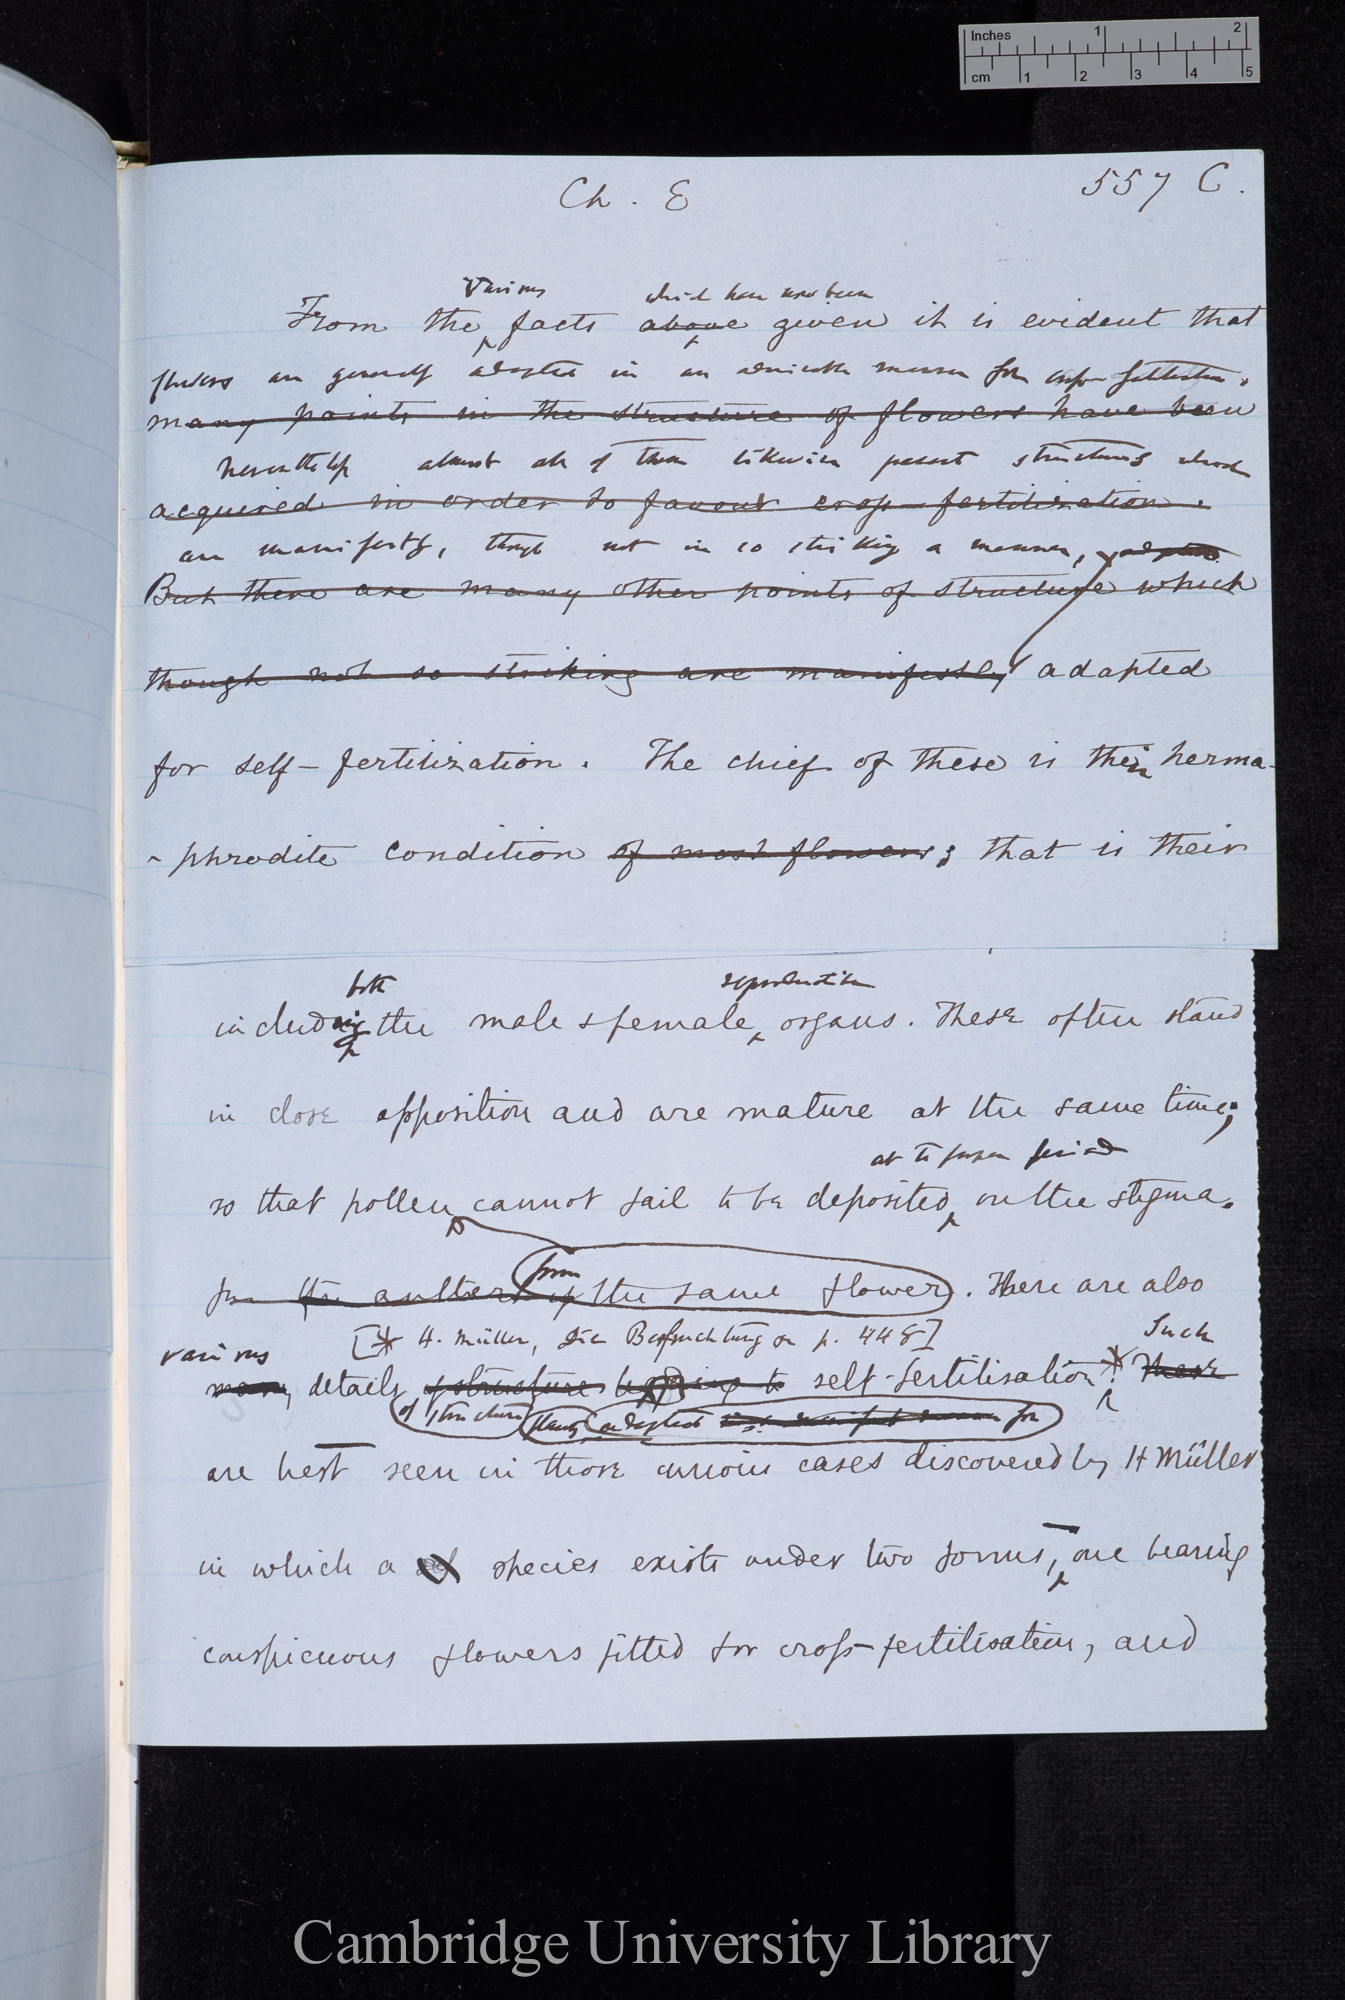 Inches 1 2
cm 1 2 3 4 5
Ch. E 557 C.
Various which have now been
From the facts above given it is evident that
flowers are generally adapted in an admirable manner for cross-fertilisation.
many points in the structure of flowers have been
Nevertheless almost all of them likewise present structures which
acquired in order to favour cross-fertilization.
are manifestly, though not in so striking a manner, adapted
But there are many other points of structure which
though not so striking are manifestly adapted
for self-fertilization. The chief of these is their herma-
-phrodite condition of most flowers; that is their
both reproductive
including the male & female organs. These often stand
in close opposition and are mature at the same time;
at the proper period
so that pollen cannot fail to be deposited on the stigma.
from
from the anthers of the same flower. There are also
[* H. Müller, Die Befruchtung &c p. 448]
various Such
many details of structure to self-fertilisation.* These
of structure adapted for
are best seen in those curious cases discovered by H Müller
in which a species exists under two forms, one bearing
conspicuous flowers fitted for cross-fertilisation, and
Cambridge University Library